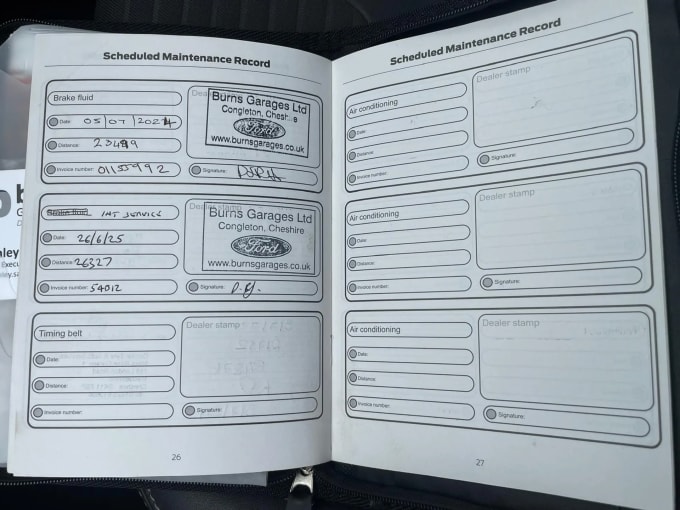 Scheduled Maintenance Record
Brake fluid
Date: 05/07/2024
Distance: 23499
Invoice number: 01155992
Dealer stamp
Burns Garages Ltd
Congleton, Cheshire
Ford
www.burnsgarages.co.uk
Signature:
Brake fluid INT SERVICE
Date: 26/6/25
Distance: 26327
Invoice number: 54012
Dealer stamp
Burns Garages Ltd
Congleton, Cheshire
Ford
www.burnsgarages.co.uk
Signature:
Timing belt
Date:
Distance:
Invoice number:
Dealer stamp
Signature:
26
Scheduled Maintenance Record
Air conditioning
Date:
Distance:
Invoice number:
Dealer stamp
Signature:
Air conditioning
Date:
Distance:
Invoice number:
Dealer stamp
Signature:
Air conditioning
Date:
Distance:
Invoice number:
Dealer stamp
Signature:
27